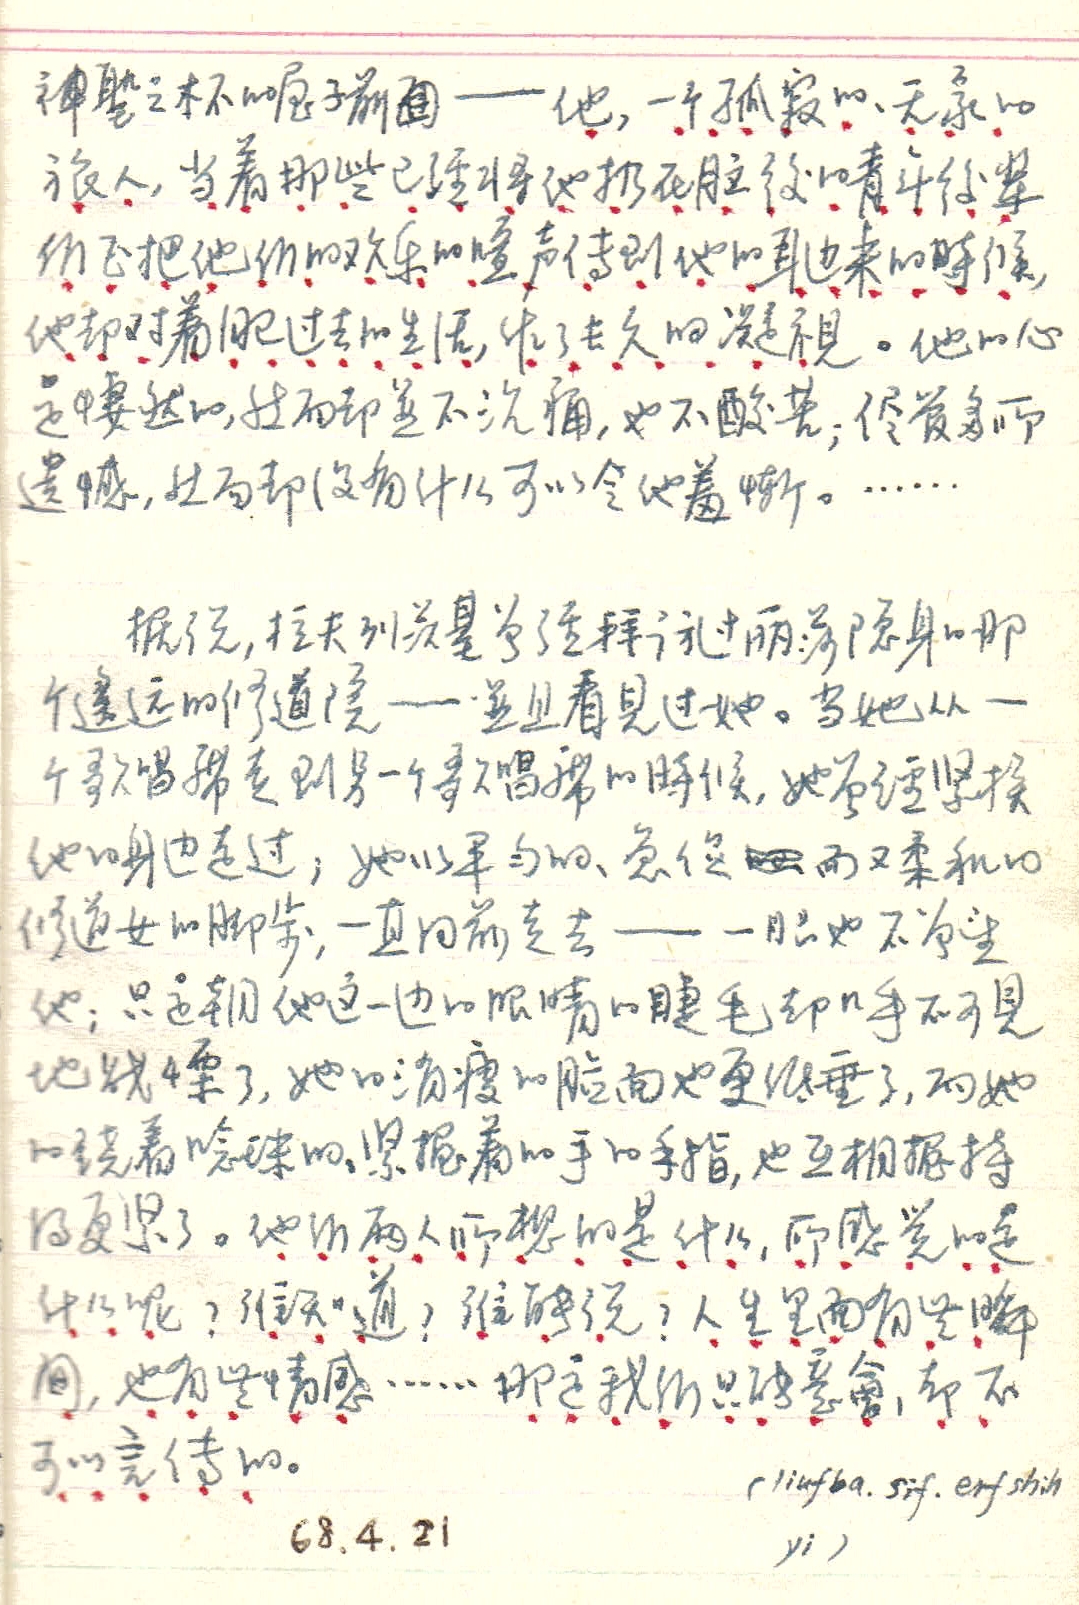 神聖之杯的屋子前面——他，一个孤寂的、无家的
旅人，当着那些已經将他扔在脏後的青年後輩
们正把他们的欢乐的喧声传到他的耳边来的時候，
他却对着自己过去的生活，作了長久的凝視。他的心
是悽然的，然而却並不沉痛，也不酸苦；侭管多所
遺憾，然而却没有什么可以令他羞慚。……
据说，拉夫列茨基曾經拜訪过丽莎隐身的那
个遙远的修道院——並且看見过她。当她从一
个歌唱席走到另一个歌唱席的時候，她曾經紧挨
他的身边走过；她以平匀的、急促而又柔和的
修道女的脚步，一直向前走去——一眼也不曾望
他；只是朝他这一边的眼睛的睫毛却几乎不可見
地战慄了，她的消瘦的脸面也更低垂了，而她
的繞着唸珠的、紧握着的手的手指，也互相握持
得更紧了。他们两人所想的是什么，所感觉的是
什么呢？谁知道？谁能说？人生里面有些瞬
间，也有些情感……那是我们只能意會，却不
可以言传的。
（liufba. sif. erfshih
yi）
68.4.21